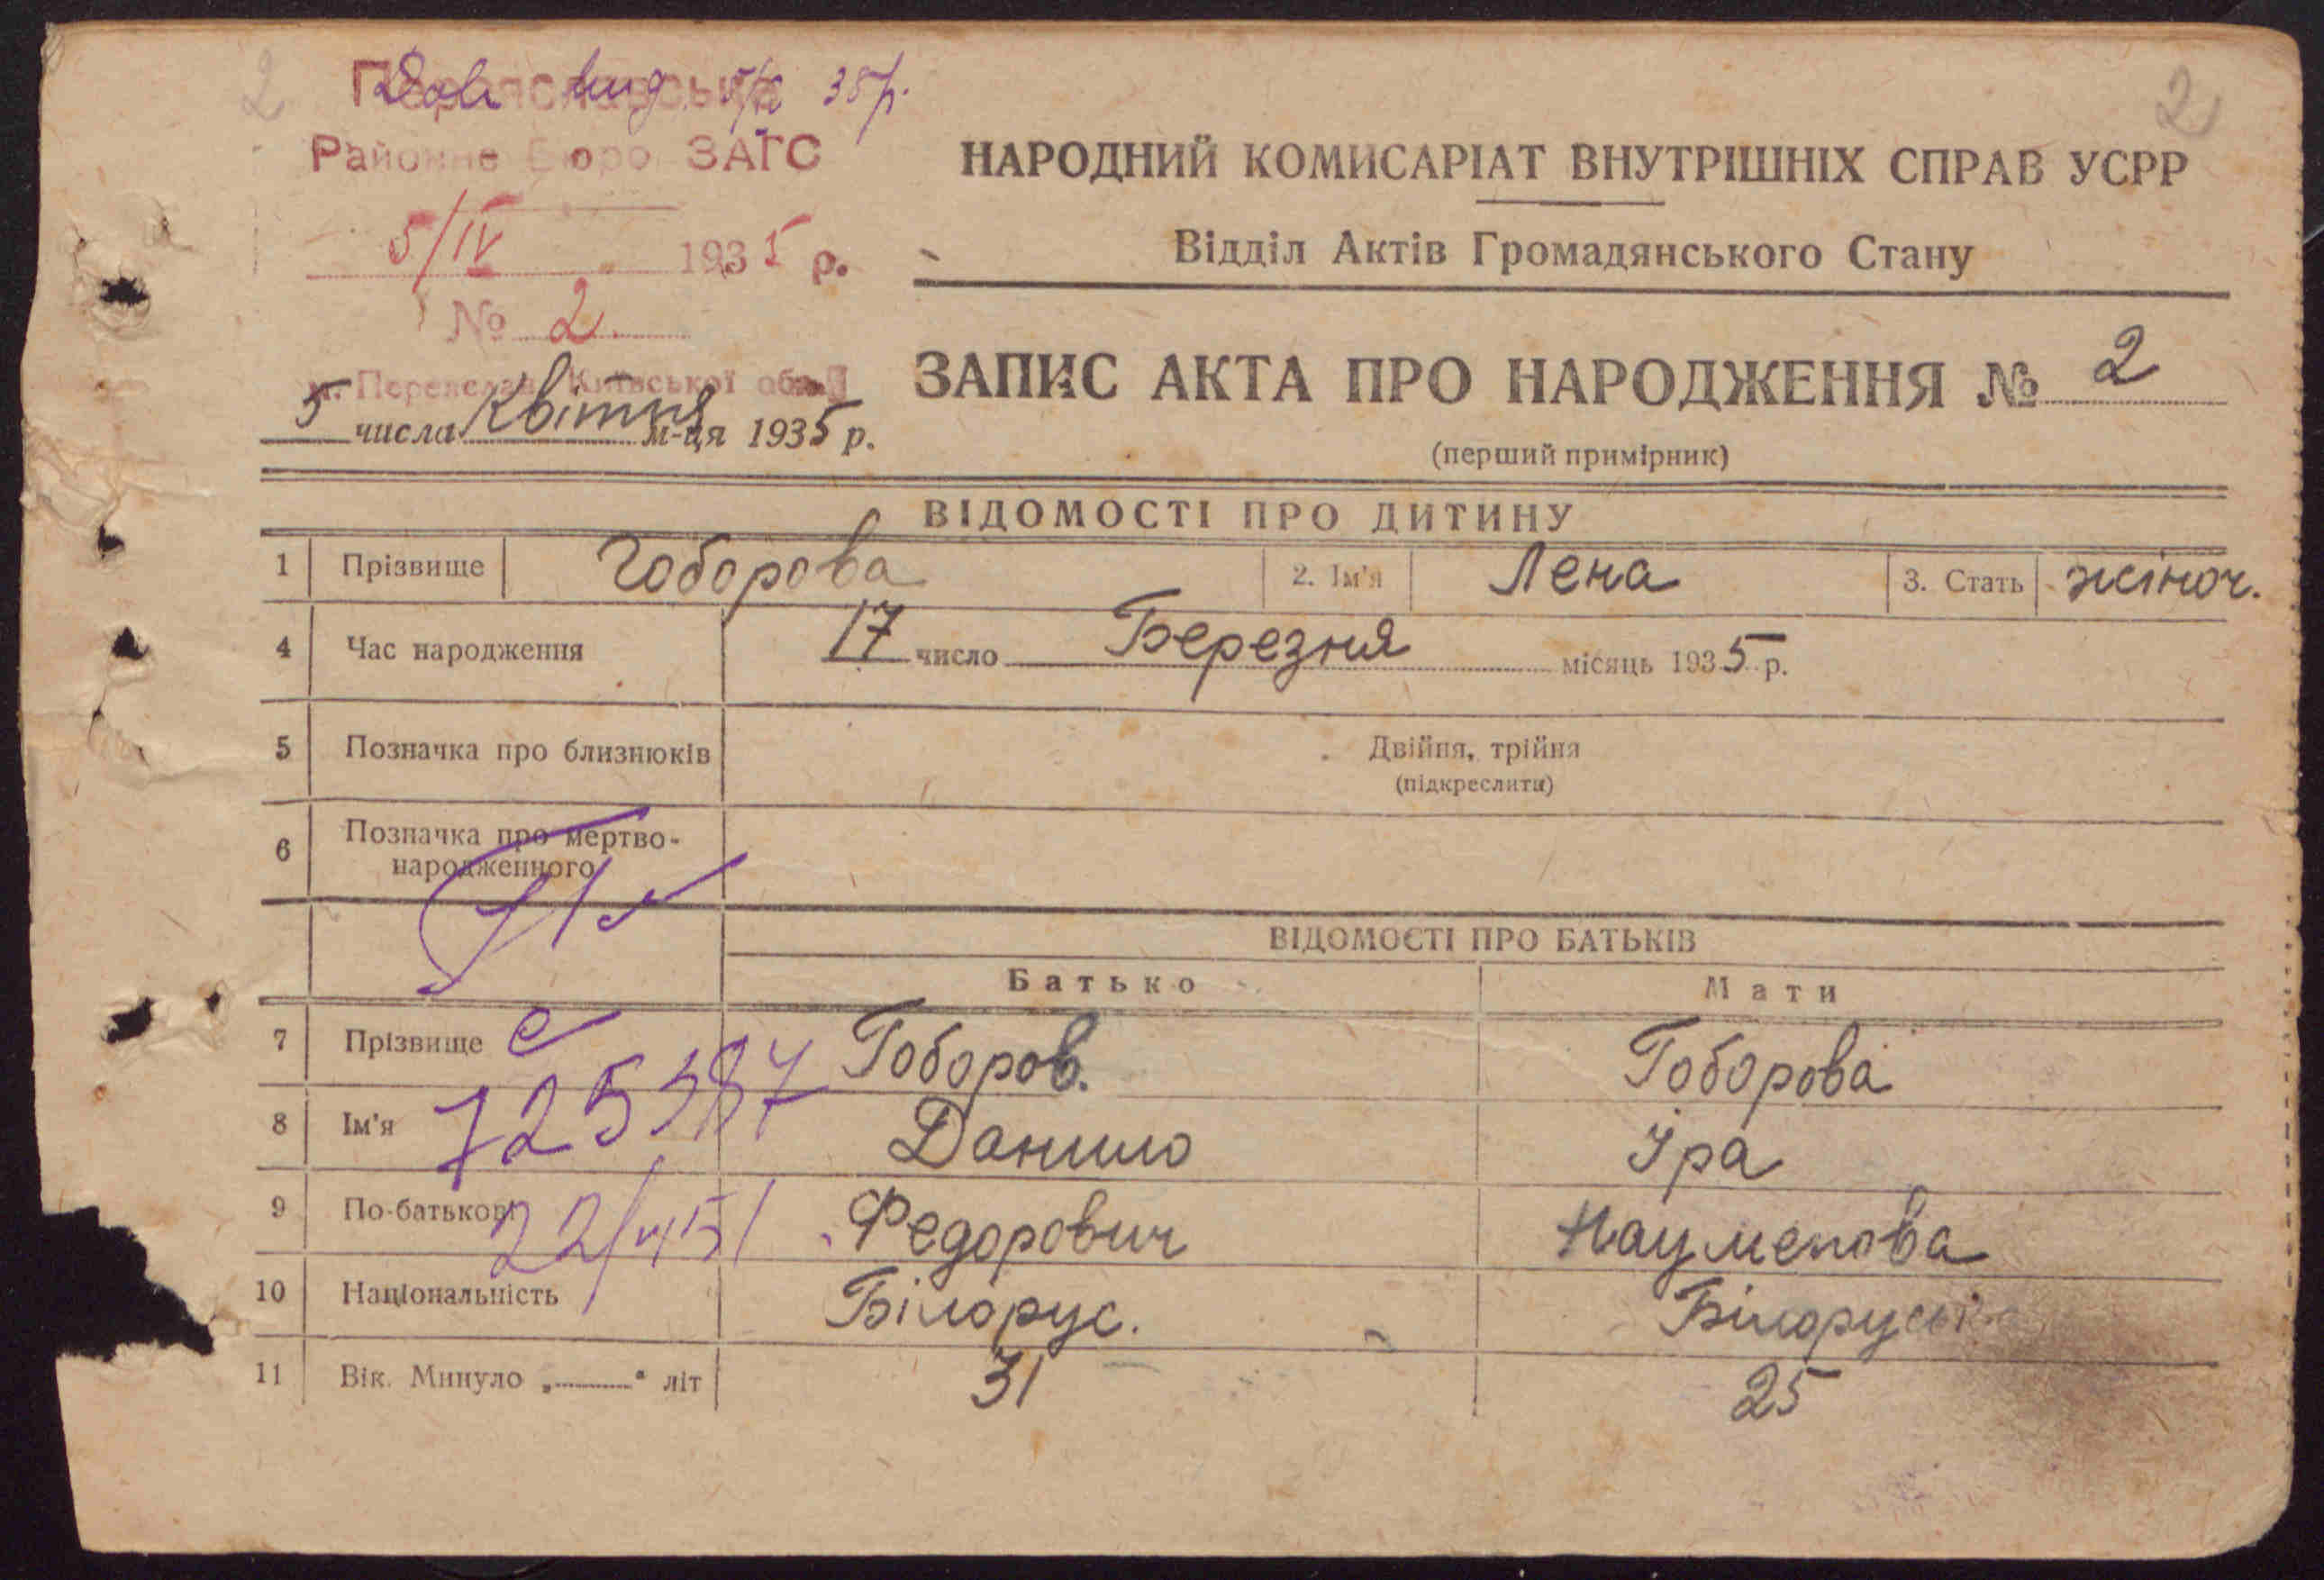 2
2
Переяславське
35 р.
Районне Бюро ЗАГС
5/IV 1935 р.
№ 2
м. Переяслав, Київської обл.
5 числа Квітня м-ця 1935 р.
НАРОДНИЙ КОМИСАРІАТ ВНУТРІШНІХ СПРАВ УСРР
Відділ Актів Громадянського Стану
ЗАПИС АКТА ПРО НАРОДЖЕННЯ № 2
(перший примірник)
ВІДОМОСТІ ПРО ДИТИНУ
1 Прізвище Гоборова 2. Ім'я Лена 3. Стать жіноч.
4 Час народження 17 число Березня місяць 1935 р.
5 Позначка про близнюків Двійня, трійня
(підкреслити)
6 Позначка про мертво-
народженного
ВІДОМОСТІ ПРО БАТЬКІВ
Батько Мати
7 Прізвище Гоборов. Гоборова
8 Ім'я Данило Іра
9 По-батькові Федорович Науменова
10 Національність Білорус. Білоруська
11 Вік. Минуло „ “ літ 31 25